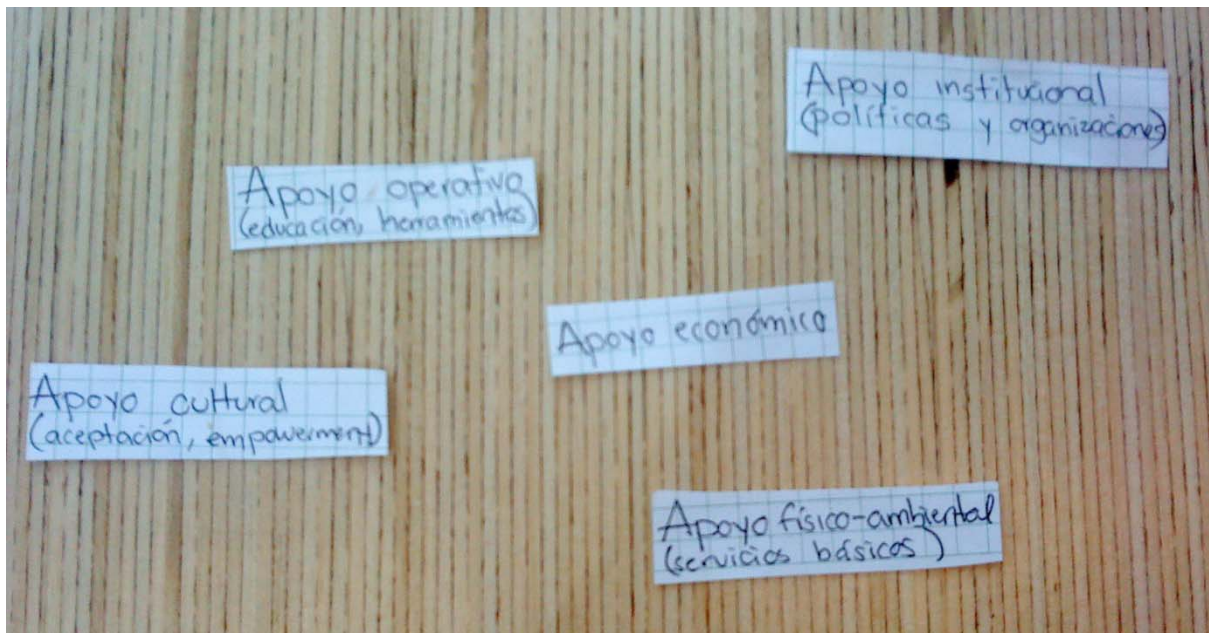 Apoyo institucional
(políticas y organizaciones)
Apoyo operativo
(educación, herramientas)
Apoyo económico
Apoyo cultural
(aceptación, empowerment)
Apoyo físico-ambiental
(servicios básicos)